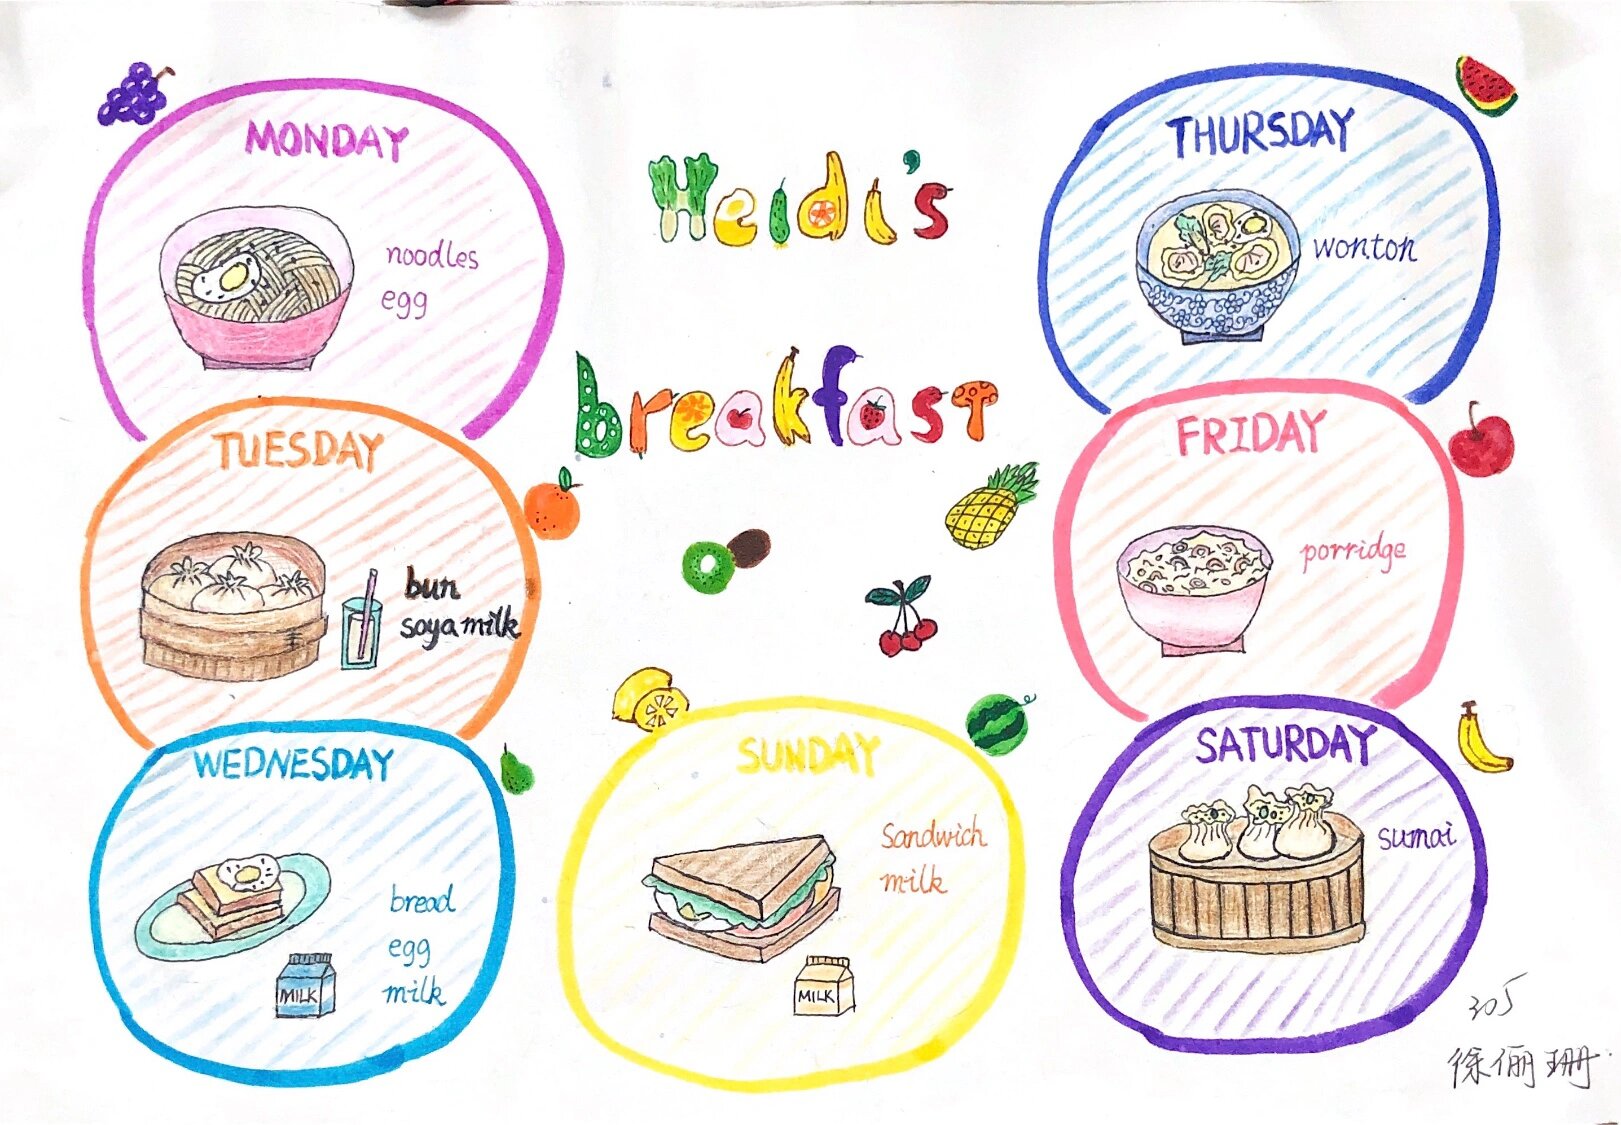 Heidi's
breakfast
MONDAY
noodles
egg
TUESDAY
bun
soya milk
WEDNESDAY
bread
egg
milk
MILK
THURSDAY
wonton
FRIDAY
porridge
SATURDAY
sumai
SUNDAY
Sandwich
milk
MILK
305
徐俪珊